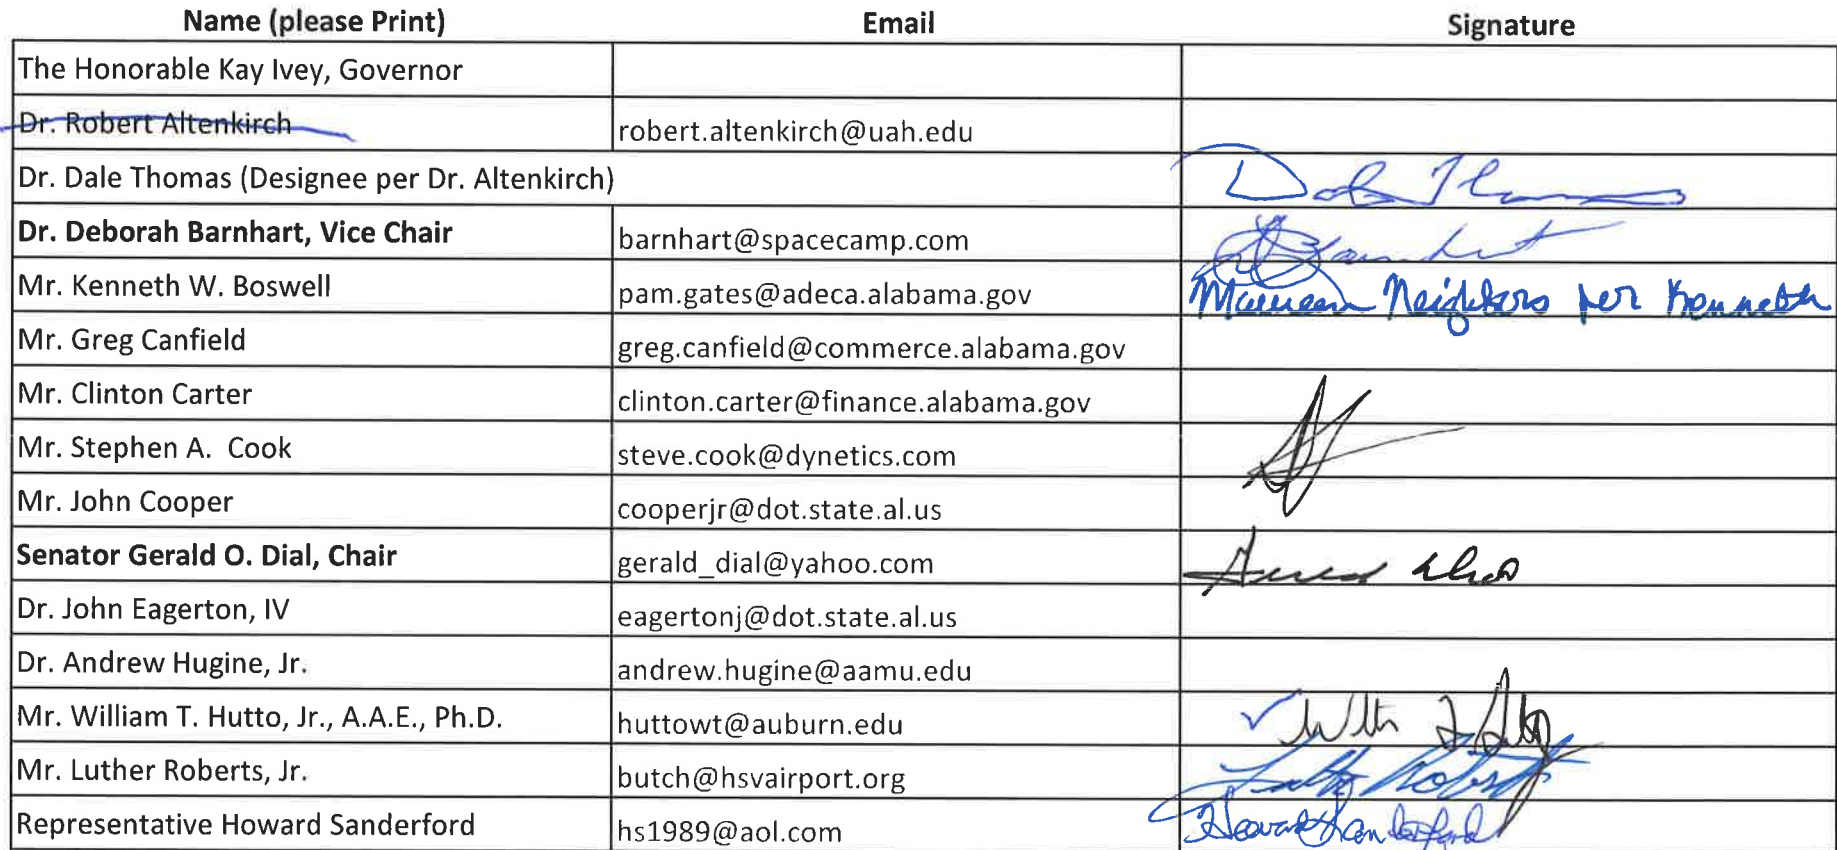 Name (please Print) Email Signature
The Honorable Kay Ivey, Governor
Dr. Robert Altenkirch robert.altenkirch@uah.edu
Dr. Dale Thomas (Designee per Dr. Altenkirch) Dale Thomas
Dr. Deborah Barnhart, Vice Chair barnhart@spacecamp.com Barnhart
Mr. Kenneth W. Boswell pam.gates@adeca.alabama.gov Maureen Neighbors per Kenneth
Mr. Greg Canfield greg.canfield@commerce.alabama.gov
Mr. Clinton Carter clinton.carter@finance.alabama.gov
Mr. Stephen A. Cook steve.cook@dynetics.com
Mr. John Cooper cooperjr@dot.state.al.us
Senator Gerald O. Dial, Chair gerald_dial@yahoo.com Gerald Dial
Dr. John Eagerton, IV eagertonj@dot.state.al.us
Dr. Andrew Hugine, Jr. andrew.hugine@aamu.edu
Mr. William T. Hutto, Jr., A.A.E., Ph.D. huttowt@auburn.edu
Mr. Luther Roberts, Jr. butch@hsvairport.org Luther Roberts
Representative Howard Sanderford hs1989@aol.com Howard Sanderford